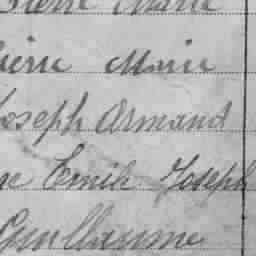 Pierre Marie
Pierre Marie
Joseph Armand
Emile Joseph
Guillaume